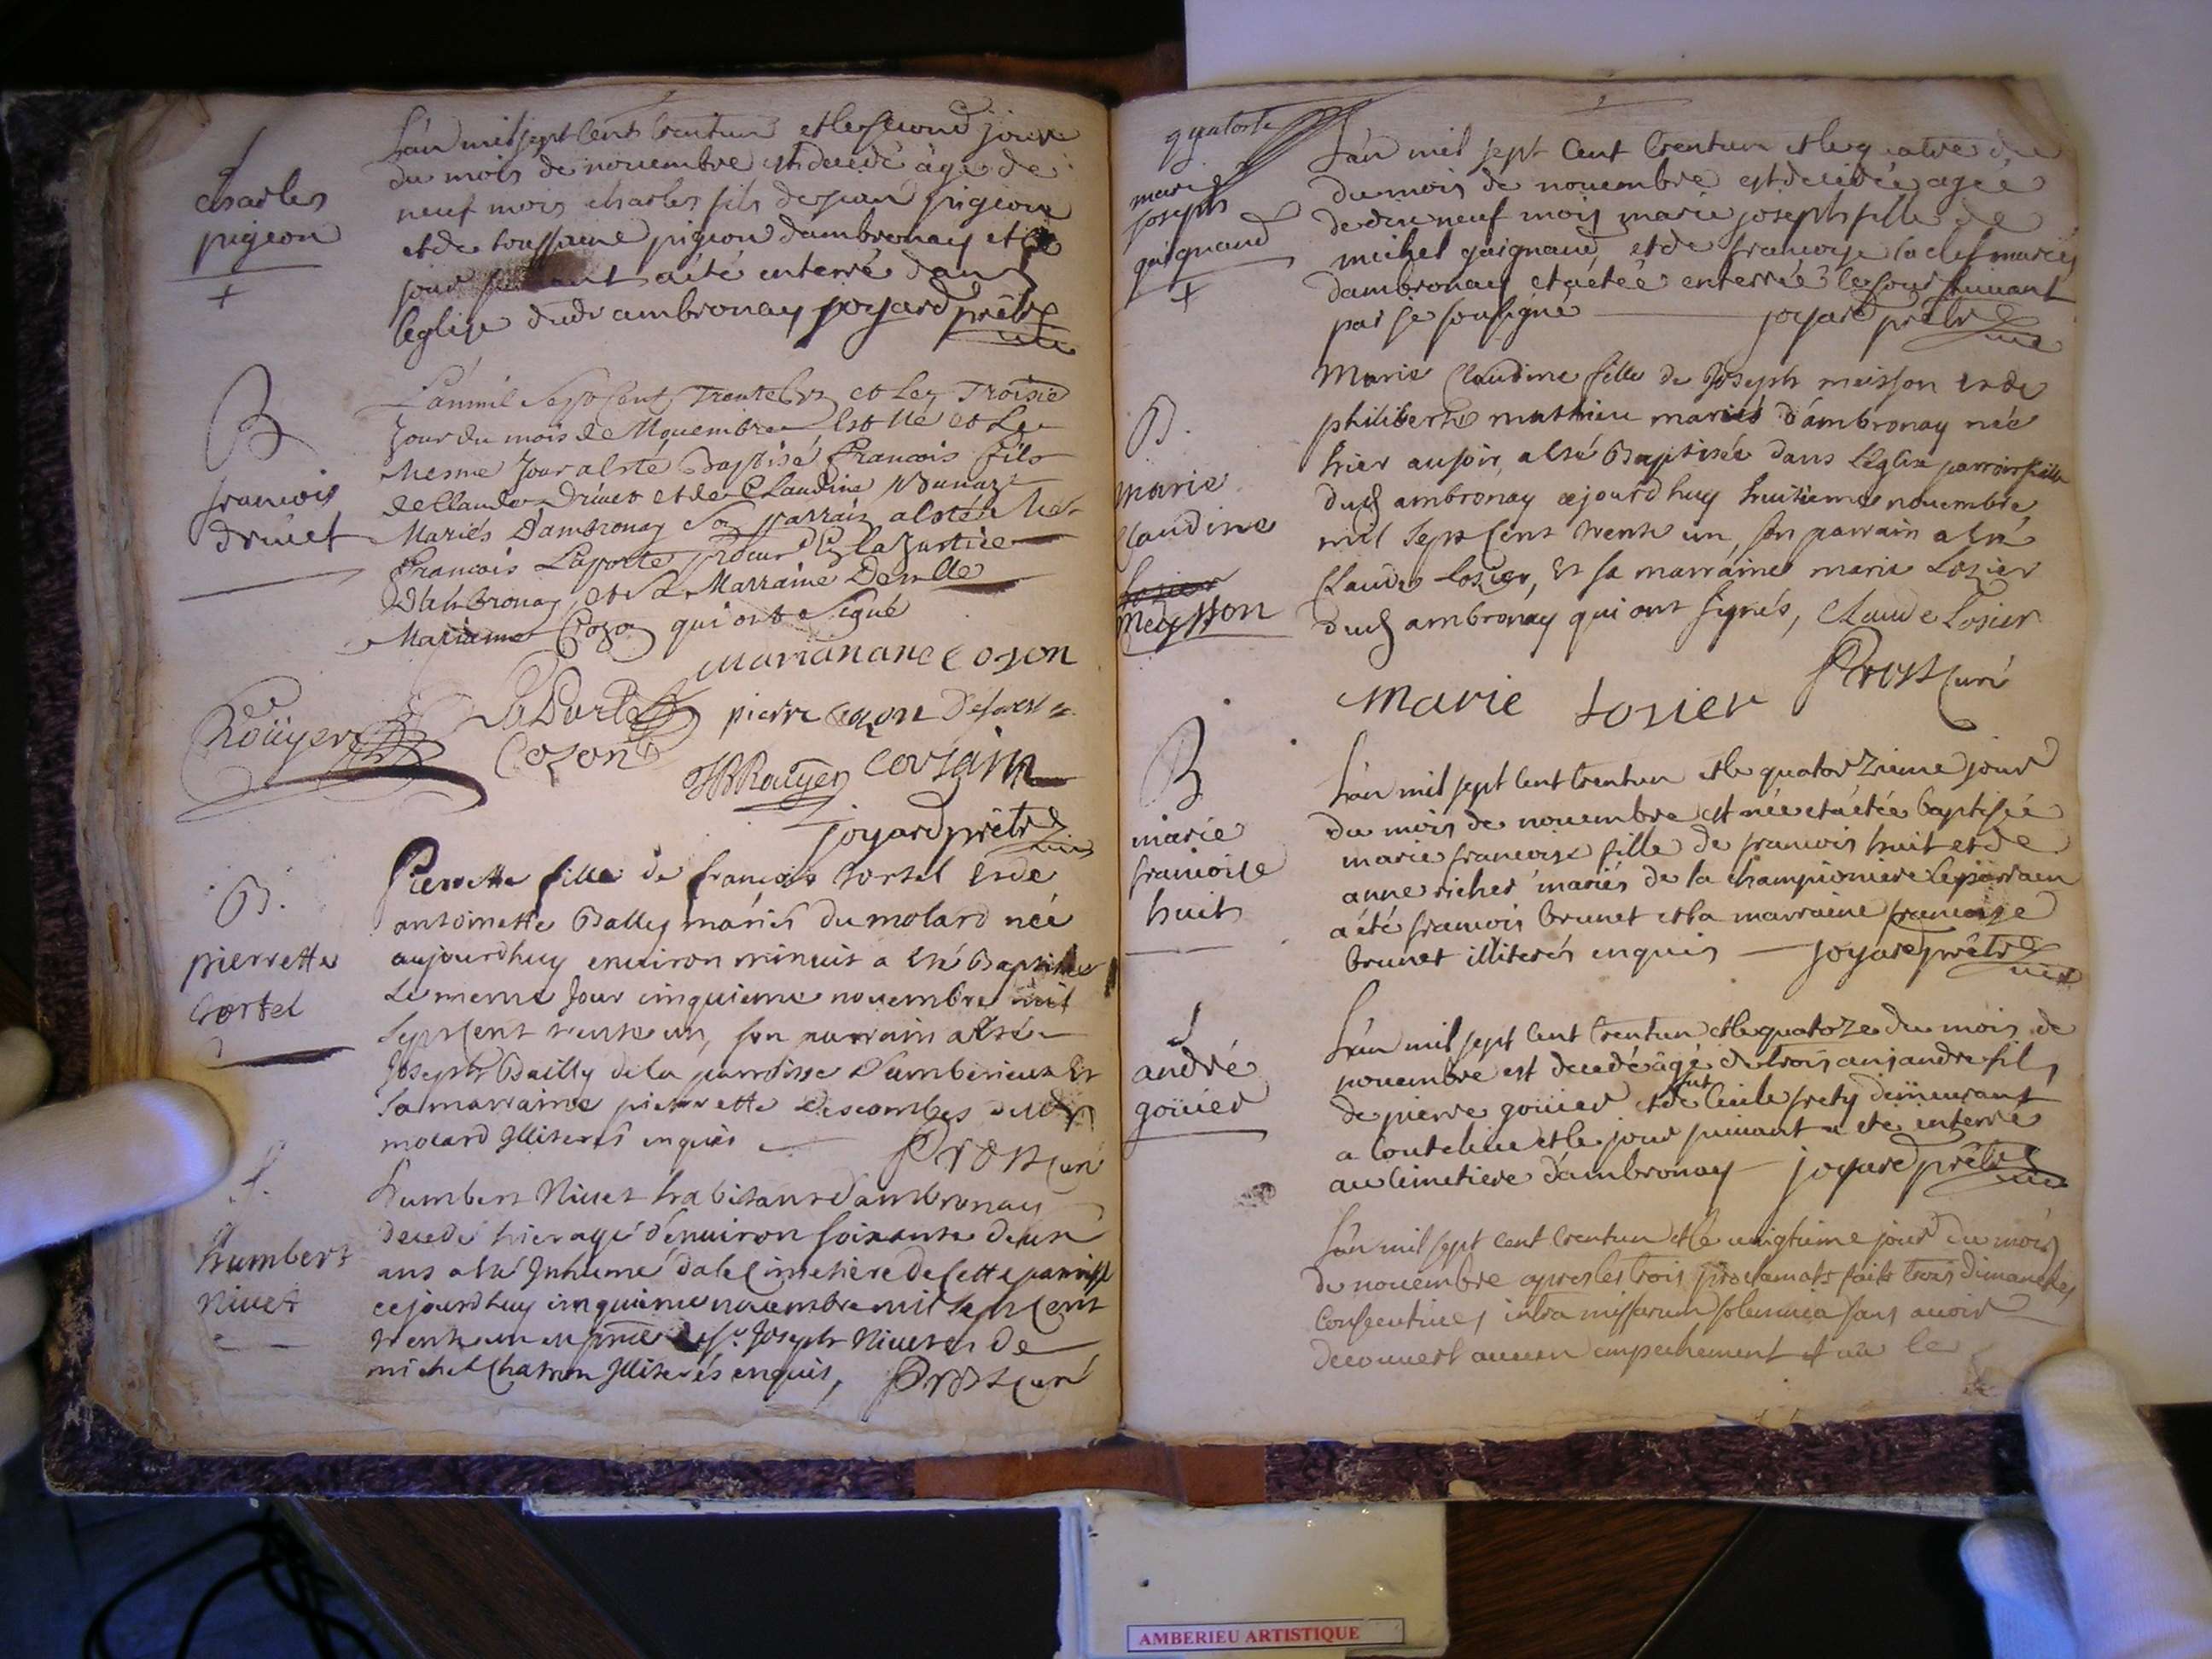 charles
pigeon
L'an mil sept cent trentun et le second jour
du mois de novembre est decedé âgé de
neuf mois charles fils de jean pigeon
et de toussaine pigeon dambronay et le
jour suivant a été enterré dans
leglise dudt ambronay joyard prêtre
B
francois
druet
L'an mil Sept Cent Trente et Le Troisie
Jour du mois de Nouembre Est Né et Le
Mesme Jour a Esté Baptisé francois fils
de Claude Driuet et de Claudine
Mariés D'ambronay Son parrain a esté Me
francois Laporte procur de la Justice
D'ambronay et Sa Marraine Demlle
Marianne Cozon qui ont Signé
marianane cozon
Roüyer
LaPorte
pierre cozon
Cozon
JBRouyer
joyard prêtre
B.
pierrette
tortel
Pierrette fille de françois tortel et de
antoinette Bally mariés du molard née
aujourdhuy environ minuit a esté Baptisée
Le meme Jour cinquieme novembre mil
sept cent trente un, son parrain a esté
Joseph Bailly de la parroisse D'amberieux Et
sa marraine pierrette Descombes dudt
molard Illiterés enquis Prost curé
humbert
nivet
humbert Nivet habitant d'ambronay
decedé hier agé d'environ soixante deux
ans a esté Inhumé da le Cimetiere de Cette parroisse
cejourdhuy cinquieme novembre mil sept cent
trente un en pnce de Sr. Joseph Nivet et de
michel Chatron Illiterés enquis, Prost curé
quatorze
marie
joseph
gaignaud
L'an mil sept Cent trentun et le quatre
du mois de novembre est decedée agée
de dix neuf mois marie joseph fille de
michel gaignaud et de francoise la clef mariés
dambronay et a étée enterrée le jour suivant
par je soussigné joyard prêtre
B.
marie
Claudine
Meysson
Marie Claudine fille de Joseph meisson et de
philiberte mathieu mariés d'ambronay née
hier au soir, a esté Baptisée dans L'eglise parroissialle
dudt ambronay cejourdhuy huitieme novembre
mil Sept Cent trente un, son parrain a esté
Claude Losier, Et sa marraine marie Losier
dudt ambronay qui ont signés, Claude Losier
Prost curé
Marie Losier
B
marie
francoise
huit
L'an mil sept cent trentun et le quatorzieme jour
du mois de novembre est née et a étée baptisée
marie francoise fille de francois huit et de
anne richer mariés de la championiere le parrain
a été francois brunet et la marraine francoise
brunet illiterés enquis joyard prêtre
andré
goüier
L'an mil sept cent trentun et le quatorze du mois de
novembre est decedé âgé de trois ans andre fils
de pierre goüier et de Cecile frety demeurant
a Coutelieu et le jour suivant a été interré
au Cimetiere d'ambronay joyard prêtre
L'an mil sept cent trentun et le vingtieme jour du mois
de novembre apres les trois proclamats faits trois dimanches
Consecutives intra missarum solemnia sans avoir
decouvert aucun empechement et vû le
AMBERIEU ARTISTIQUE